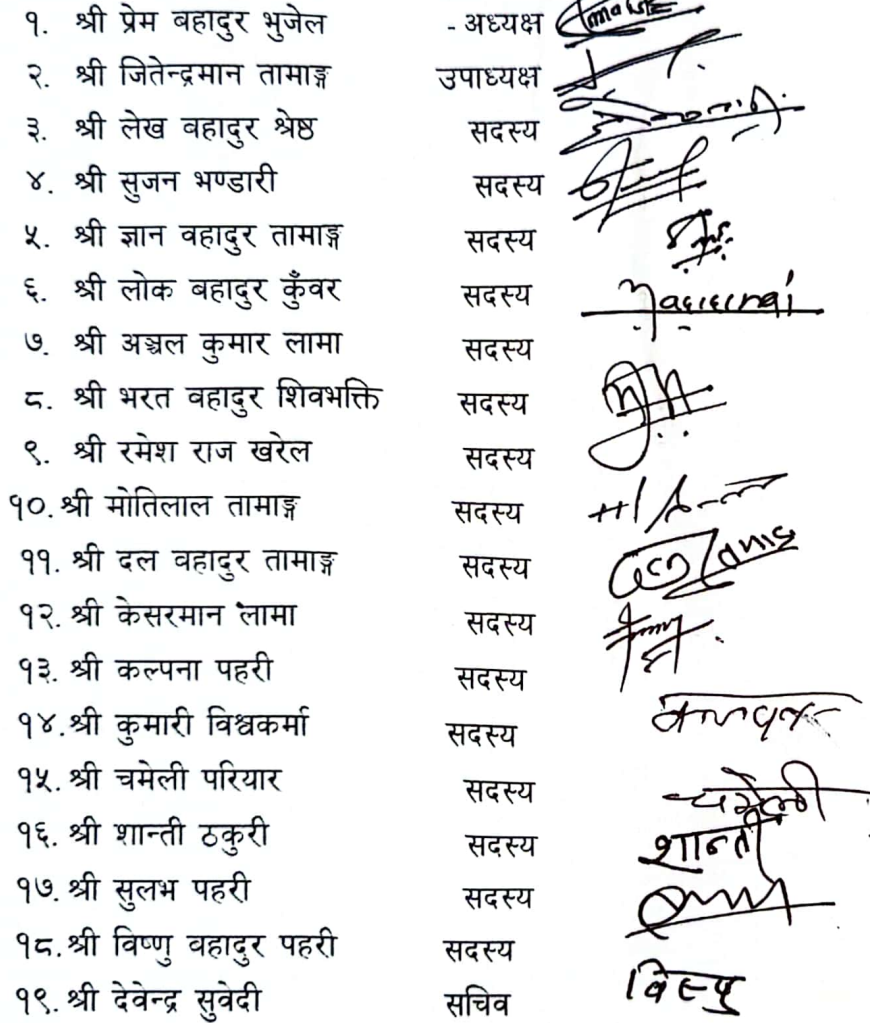 १. श्री प्रेम बहादुर भुजेल - अध्यक्ष
२. श्री जितेन्द्रमान तामाङ्ग उपाध्यक्ष
३. श्री लेख वहादुर श्रेष्ठ सदस्य
४. श्री सुजन भण्डारी सदस्य
५. श्री ज्ञान वहादुर तामाङ्ग सदस्य
६. श्री लोक बहादुर कुँवर सदस्य
७. श्री अञ्चल कुमार लामा सदस्य
८. श्री भरत वहादुर शिवभक्ति सदस्य
९. श्री रमेश राज खरेल सदस्य
१०. श्री मोतिलाल तामाङ्ग सदस्य
११. श्री दल वहादुर तामाङ्ग सदस्य
१२. श्री केसरमान लामा सदस्य
१३. श्री कल्पना पहरी सदस्य
१४. श्री कुमारी विश्वकर्मा सदस्य
१५. श्री चमेली परियार सदस्य चमेली
१६. श्री शान्ती ठकुरी सदस्य शान्ती
१७. श्री सुलभ पहरी सदस्य
१८. श्री विष्णु वहादुर पहरी सदस्य
१९. श्री देवेन्द्र सुवेदी सचिव